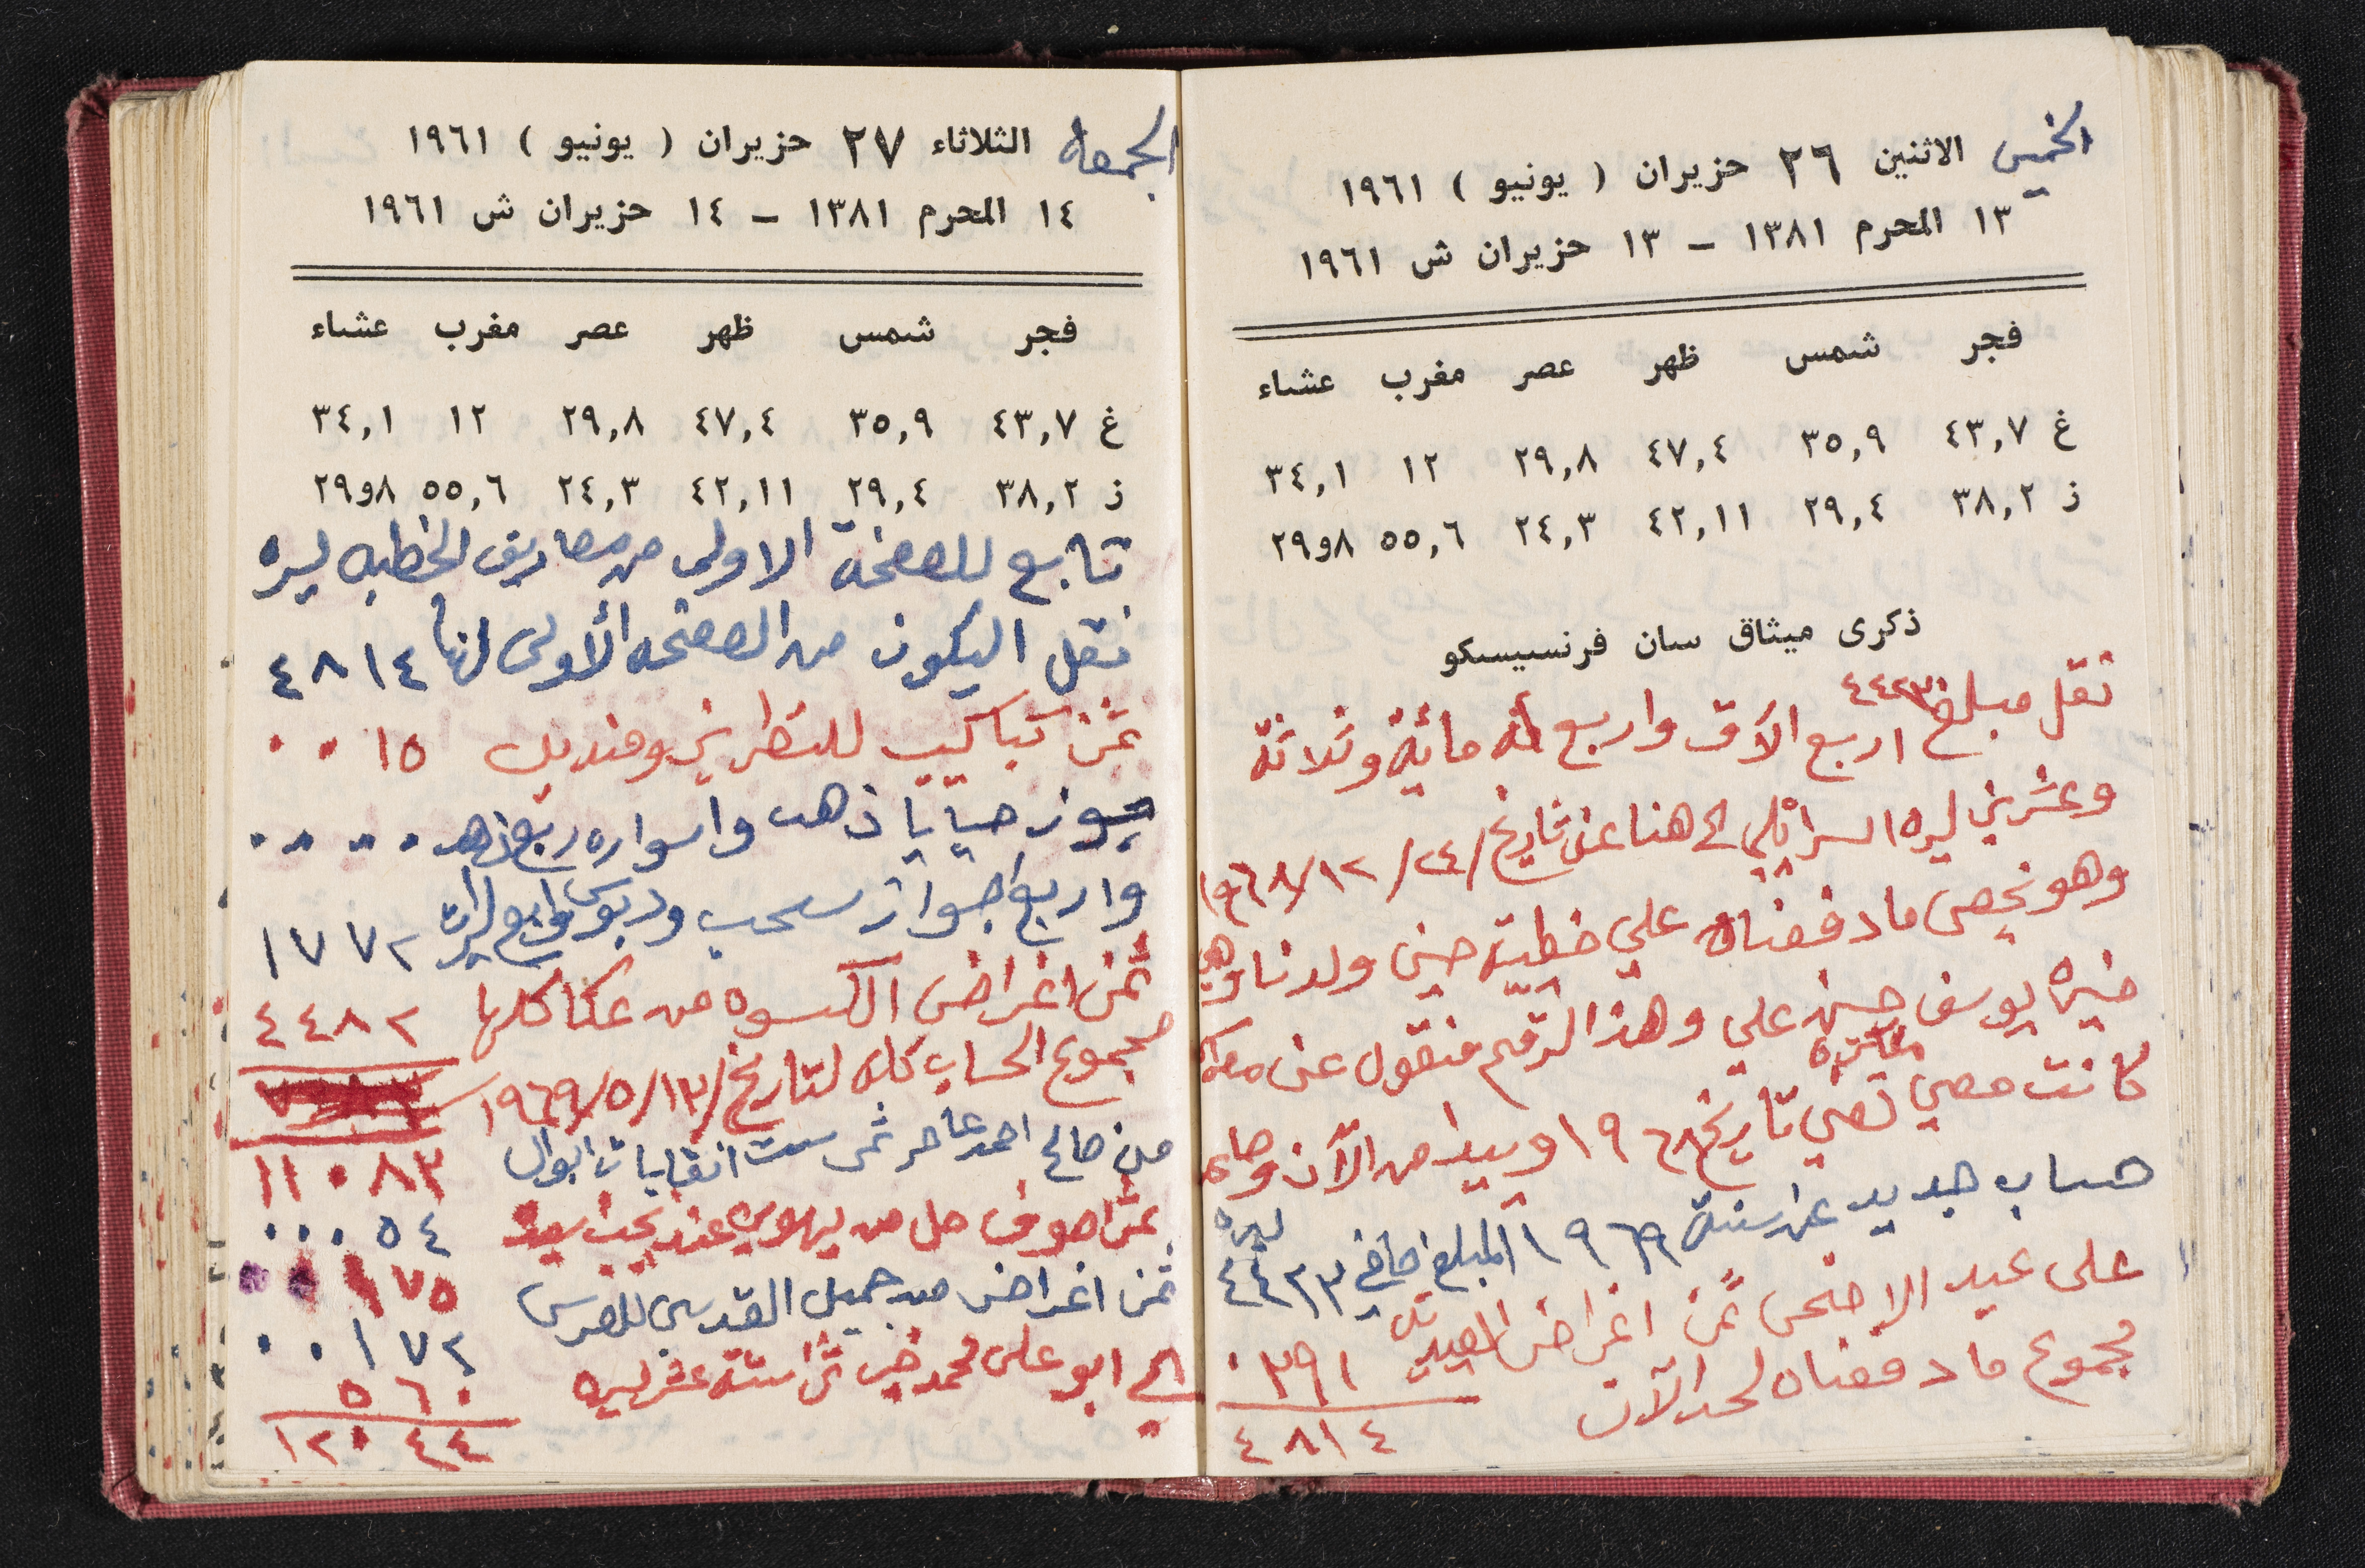 الخميس الاثنين ٢٦ حزيران ( يونيو ) ١٩٦١
١٣ المحرم ١٣٨١ – ١٣ حزيران ش ١٩٦١
فجر شمس ظهر عصر مغرب عشاء
غ ٤٣,٧ ٣٥,٩ ٤٧,٤ ٢٩,٨ ١٢ ٣٤,١
ز ٣٨,٢ ٢٩,٤ ٤٢,١١ ٢٤,٣ ٥٥,٦ ٨و٢٩
ذكرى ميثاق سان فرنسيسكو
نقل مبلغ ٤٤٢٣
اربع الآف واربع مائة وثلاثة
وعشرين ليره اسرائلي الى هنا عن تاريخ /٢٤/١٢/١٩٦٨
وهو نخص ما دفعناه على خطبة حسن ولدنا وهي
خيره يوسف حسن علي وهذا الرقم منقول عن مفكره
كانت معي تخص تاريخ ١٩٦٨ ويبدا من الآن وصاعد
حساب جديد عن سنة ١٩٦٩ المبلغ صافي ٤٤٢٣ ليره
على عيد الاضحى ثمن اغراض العيد ٣٩١٠
مجموع ما دفعناه لحد الآن
٤٨١٤
الجمعه الثلاثاء ٢٧ حزيران ( يونيو ) ١٩٦١
١٤ المحرم ١٣٨١ – ١٤ حزيران ش ١٩٦١
فجر شمس ظهر عصر مغرب عشاء
غ ٤٣,٧ ٣٥,٩ ٤٧,٤ ٢٩,٨ ١٢ ٣٤,١
ز ٣٨,٢ ٢٩,٤ ٤٢,١١ ٢٤,٣ ٥٥,٦ ٨و٢٩
تابع للصفحة الاولى من مصاريف الخطبه ليره
نقل اليكون من الصفحه الأولى لهنا ٤٨١٤
ثمن كباكيب للتطريز ومنديل ١٥٠٠
جوز حيايا ذهب واسواره ربع ذهب ٠٠٠٠
واربع اجواز سحب ودبوس واربع ليرات ١٧٧٢
ثمن اغراض الكسوه من عكا كلها ٤٤٨٢
مجموع الحساب كله لتاريخ /١٣/٥/١٩٦٩
١١٠٨٣
من صالح احمد ثمن ست ٠٠٠٥٤
ثمن صوف من عند ١٧٥
ثمن اغراض من جميل القدسي للعرس ٠٠١٧٢
الى ابو على محمد ستة عشر ليره ٥٦٠
١٢٠٤٤